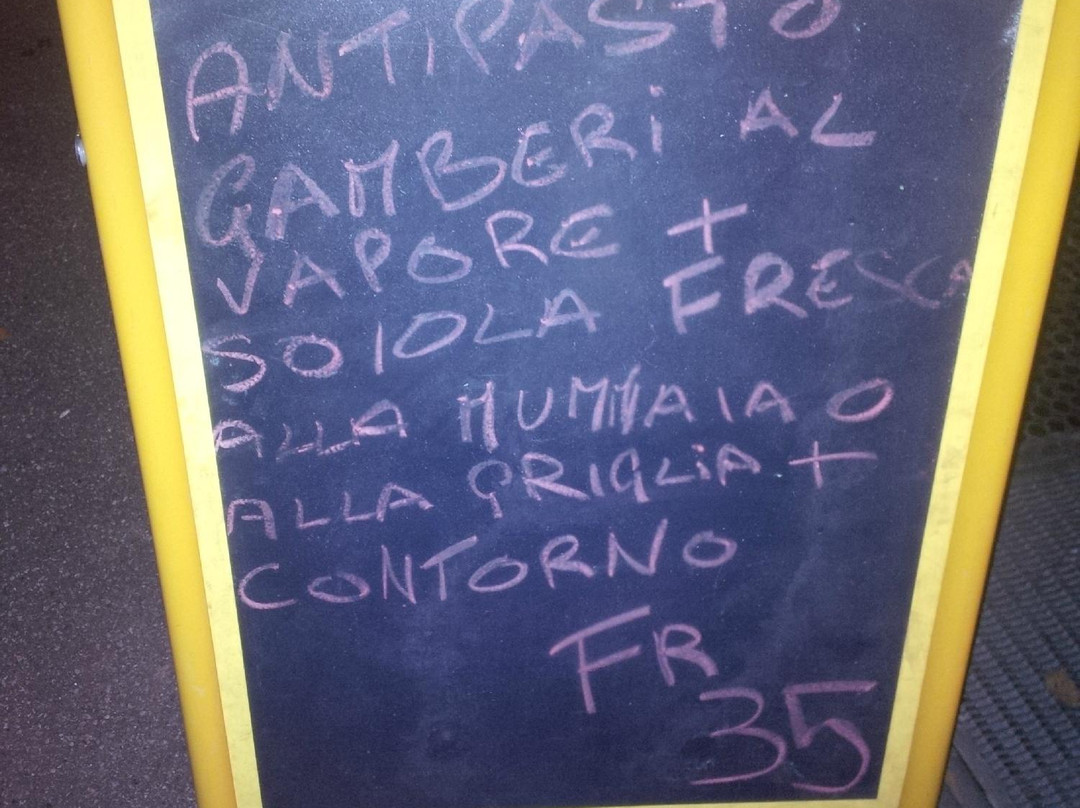 ANTIPASTO
GAMBERI AL
VAPORE +
SOIOLA FRESCA
ALLA MUMMAIA O
ALLA GRIGLIA +
CONTORNO
FR
35